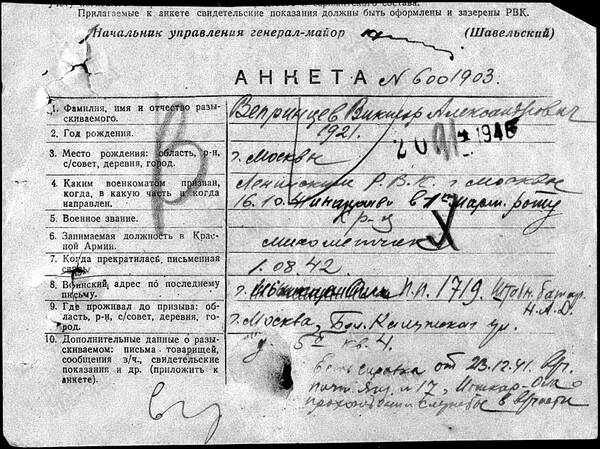 Прилагаемые к анкете свидетельские показания должны быть оформлены и заверены РВК.
Начальник управления генерал-майор (Шавельский)
АНКЕТА N 6001903.
1. Фамилия, имя и отчество разыскиваемого. Вепринцев Виктор Александрович
2. Год рождения. 1921.
20 1946
3. Место рождения: область, р-н, с/совет, деревня, город. г. Москвы
4. Каким военкоматом призван, когда, в какую часть и когда направлен. Ленинским Р.В.К. г. Москвы
16.10. в 1 марш. роту
5. Военное звание. Кр-ц
6. Занимаемая должность в Красной Армии. минометчик
7. Когда прекратилась письменная связь. 1.08.42
8. Воинский адрес по последнему письму. П.П. 1719.
9. Где проживал до призыва: область, р-н, с/совет, деревня, город. г. Москва, Бол. Калужская ул.
10. Дополнительные данные о разыскиваемом: письма товарищей, сообщения з/ч., свидетельские показания и др. (приложить к анкете). д. 5 кв. 4.
справка от 23.12.41.
17, Йошкар-Ола
прохождении службы в